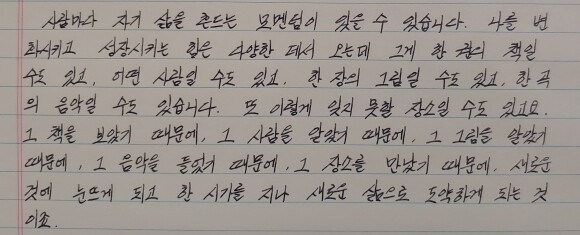 사람마다 자기 삶을 흔드는 모멘텀이 있을 수 있습니다. 나를 변
화시키고 성장시키는 힘은 다양한 데서 오는데 그게 한 권의 책일
수도 있고, 어떤 사람일 수도 있고, 한 장의 그림일 수도 있고, 한 곡
의 음악일 수도 있습니다. 또 이렇게 잊지 못할 장소일 수도 있고요.
그 책을 보았기 때문에, 그 사람을 알았기 때문에, 그 그림을 알았기
때문에, 그 음악을 들었기 때문에, 그 장소를 만났기 때문에, 새로운
것에 눈뜨게 되고 한 시기를 지나 새로운 삶으로 도약하게 되는 것
이죠.